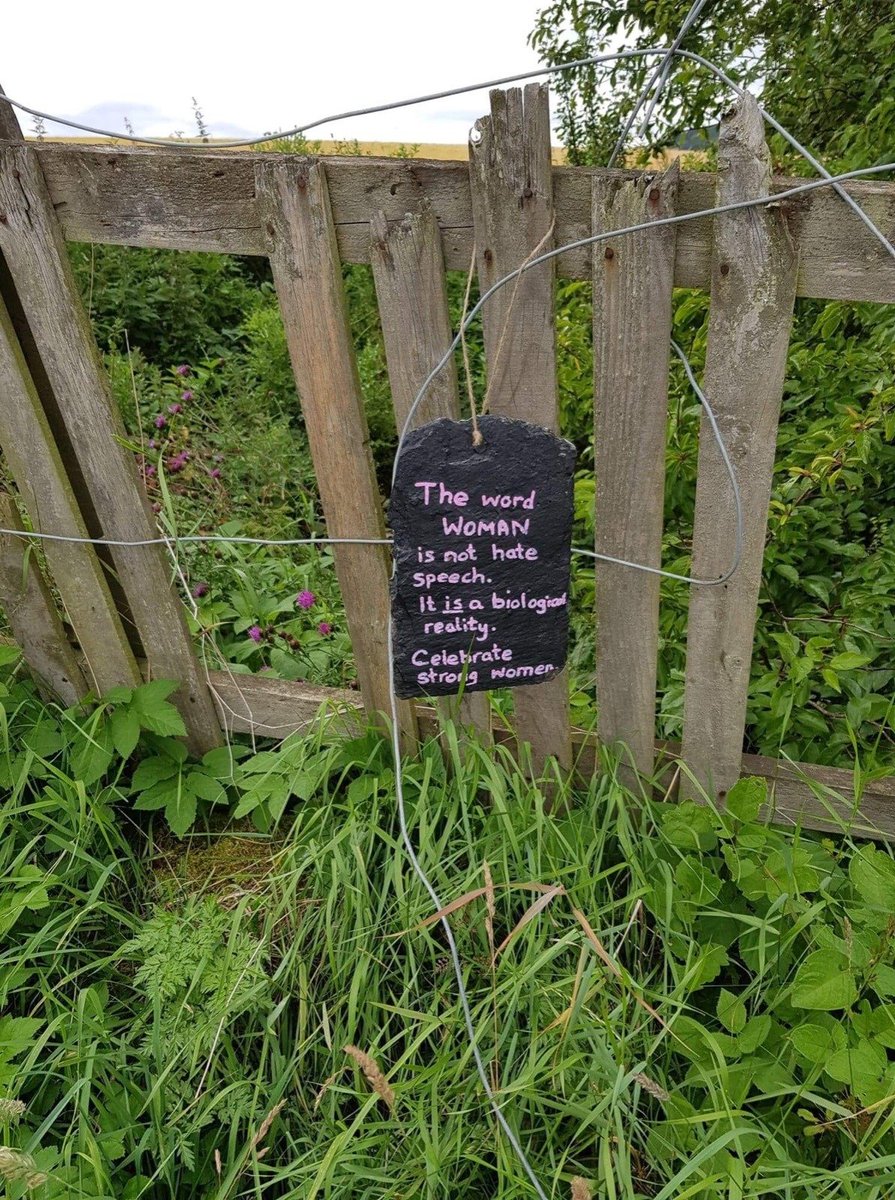 The word
WOMAN
is not hate
speech.
It is a biological
reality.
Celebrate
strong women